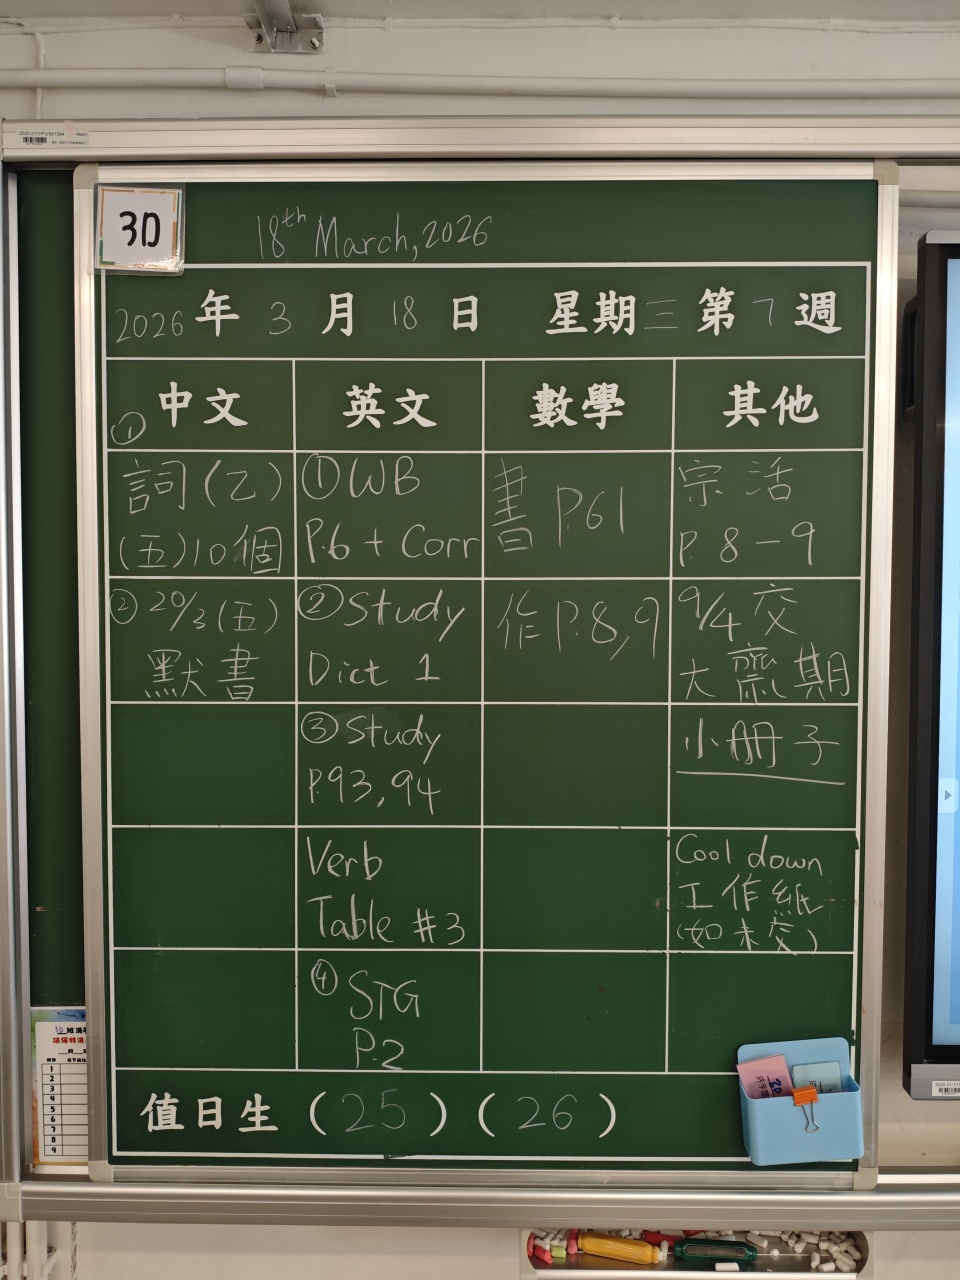 3D
18th March, 2026
2026年3月18日 星期三第7週
中文 英文 數學 其他
① 詞(乙)
(五)10個
② 20/3(五)
默書
① WB
P.6 + Corr
② Study
Dict 1
③ Study
P.93, 94
Verb
Table #3
④ STG
P.2
書 P.61
作 P.8,9
宗活
P. 8-9
9/4 交
大齋期
小册子
Cool down
工作紙
(如未交)
值日生 (25) (26)
3D班
1
2
3
4
5
6
7
8
9